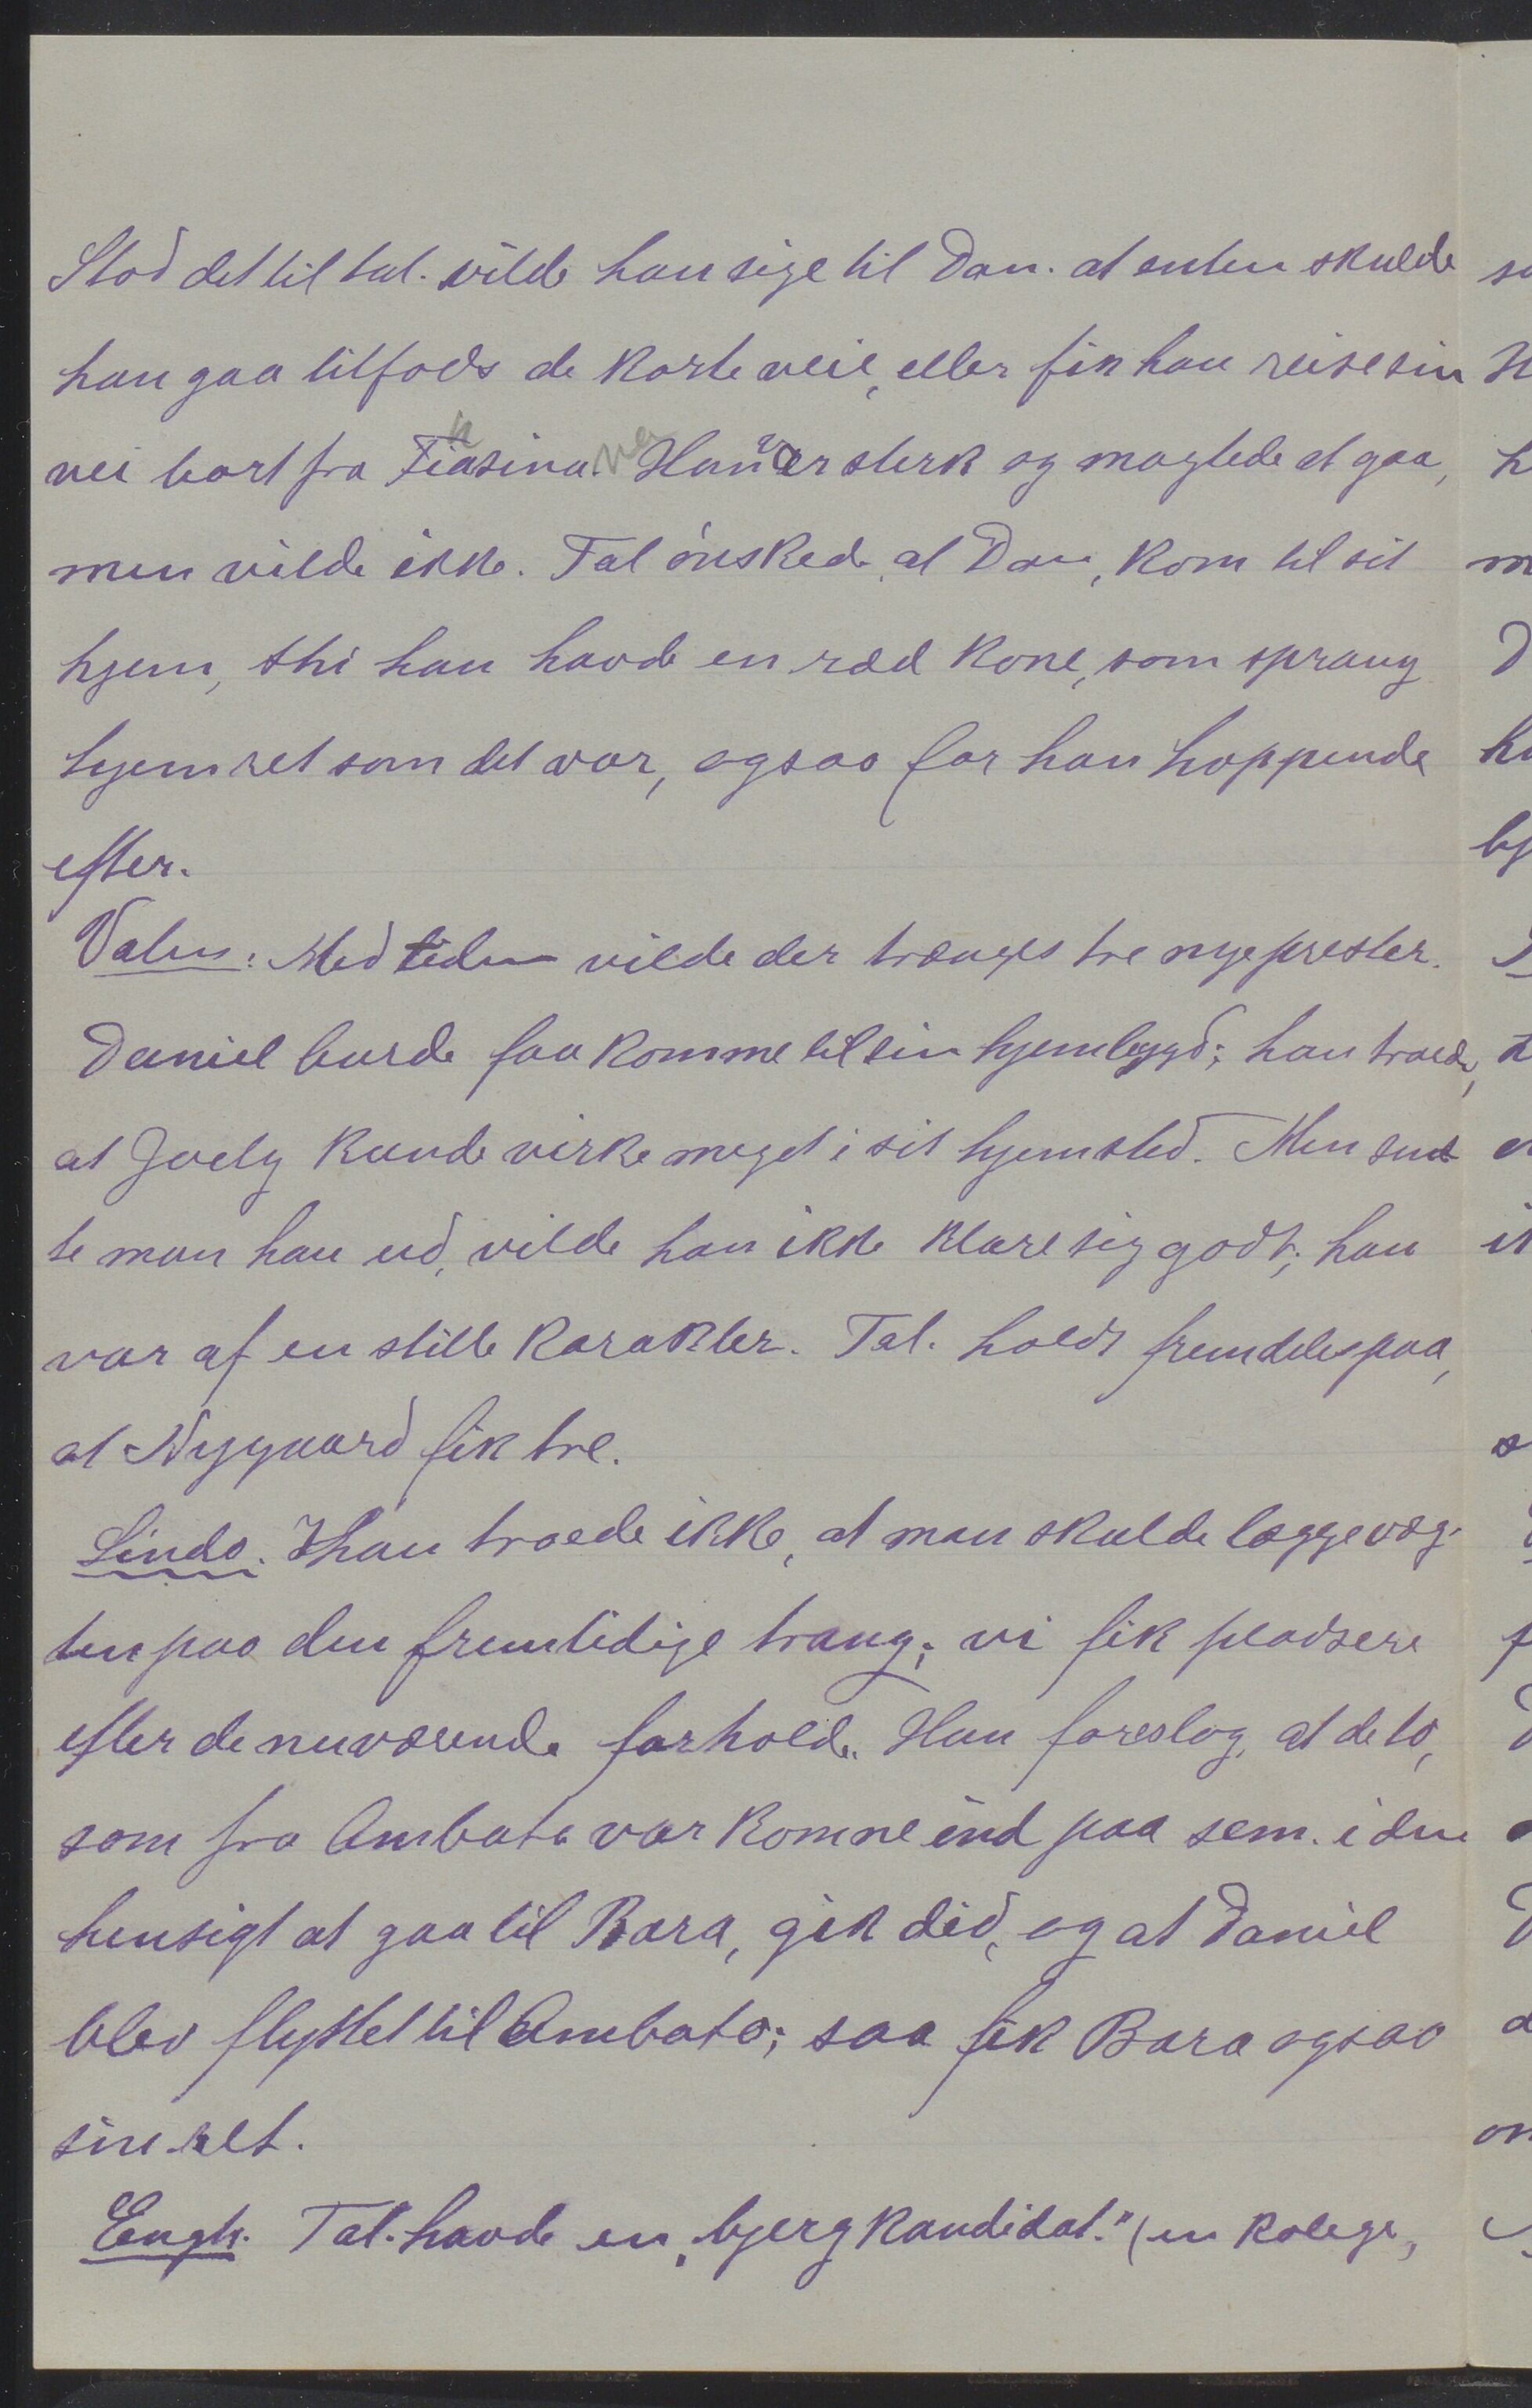 Stod det til tal. vilde han sige til Dan. at enten skulde
han gaa tilfods de korte veie, eller fik han reise sin
vei bort fra Fihasinana. Han er sterk og magtede at gaa,
men vilde ikke. Tal ønskede, at Dan, kom til sit
hjem, thi han havde en ræd kone, som sprang
hjem ret som det var, ogsaa for han hoppende
efter.
Valen: Med tiden vilde der trænges tre nye prester.
Daniel burde faa komme til sin hjembygd; han troede,
at Joely kunde virke meget i sit hjemsted. Men send
te man han ud, vilde han ikke klare sig godt; han
var af en stille karakter. Tal. holdt fremdeles paa,
at Nygaard fik tre.
Lindo. Han troede ikke, at man skulde lægge væg-
ten paa den fremtidige trang; vi fik pladsere
efter de nuværende forhold. Han foreslog, at de to,
som fra Ambato var komne ind paa sem. i den
hensigt at gaa til Bara, gik did, og at Daniel
blev flyttet til Ambato; saa fik Bara ogsaa
sin ret.
Engh. Tal. havde en "bjergkandidat." (en kolega,